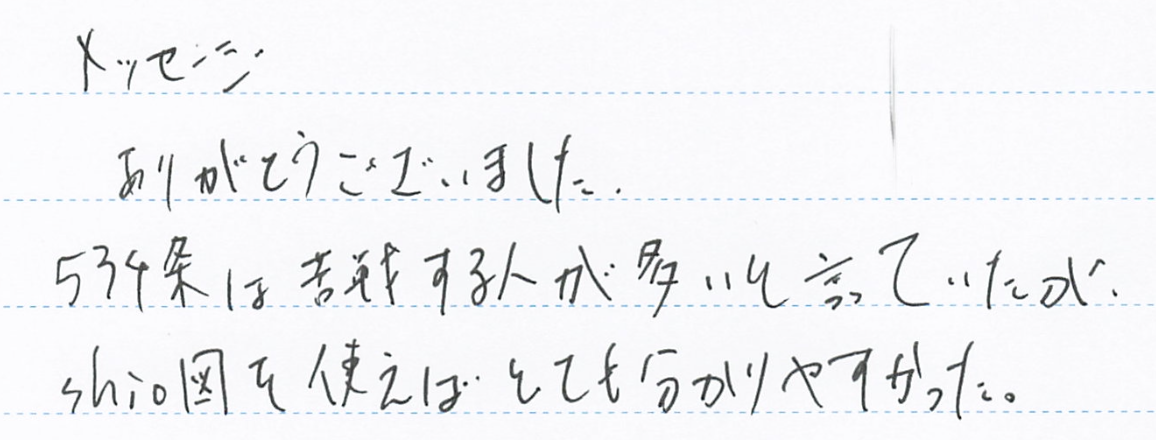 メッセージ
ありがとうございました.
534条は苦戦する人が多いと言っていたが、
shio図を使えばとても分かりやすかった。